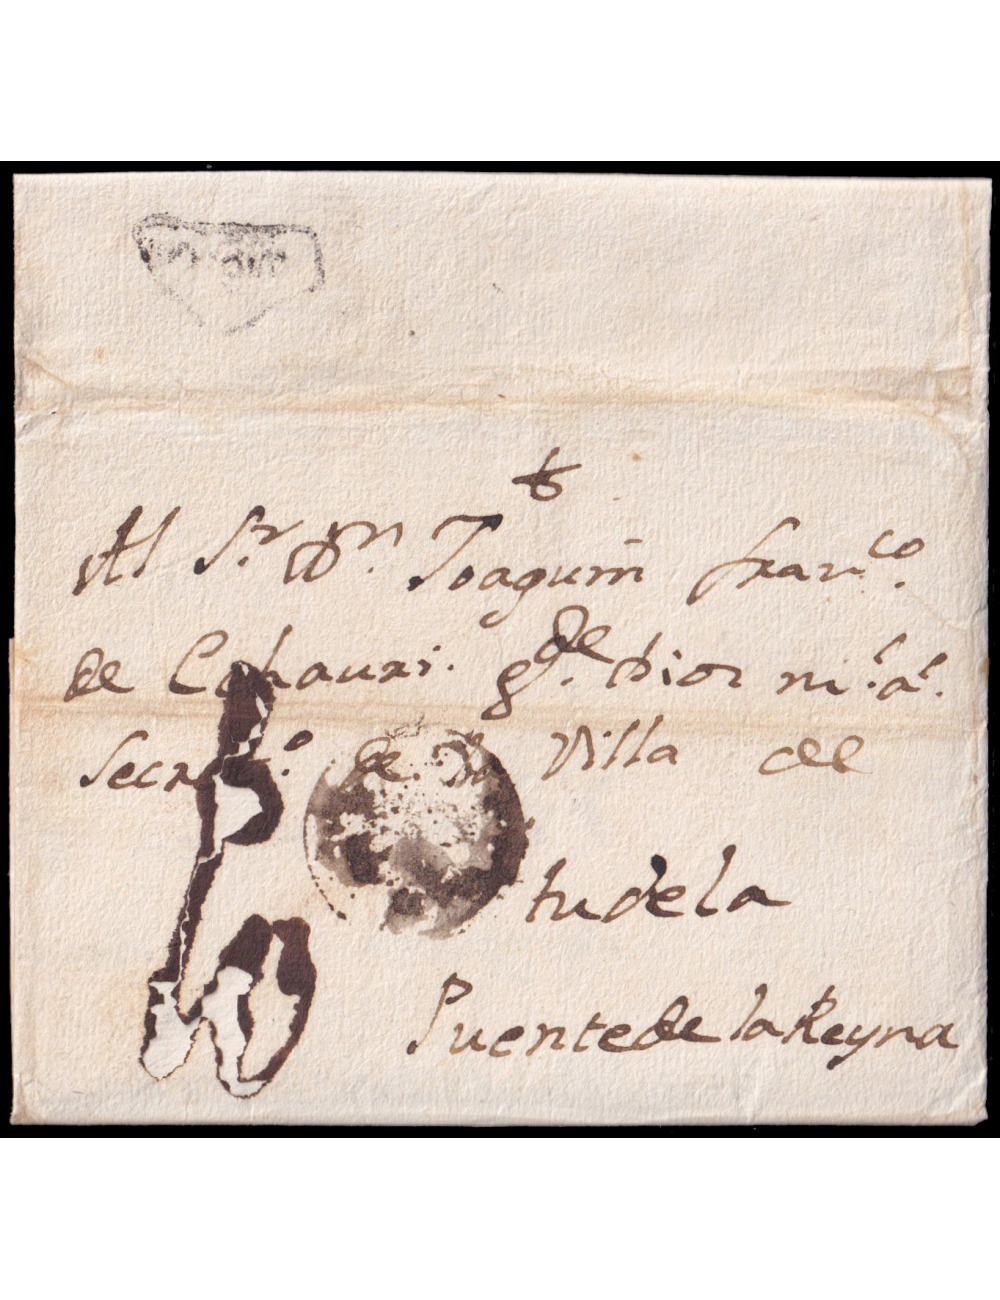 Al S.r D.n Joaquin Fran.co
de Cahauri. g.de Dios m.s a.s
Secret.o de la Villa de
tudela
Puente de la Reyna